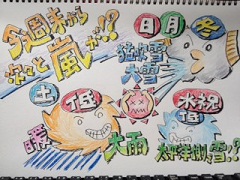 今週末から
次々と嵐が!?
日月冬
猛吹雪
大雪
土 低
大雨
水祝
低
太平洋側雪!?